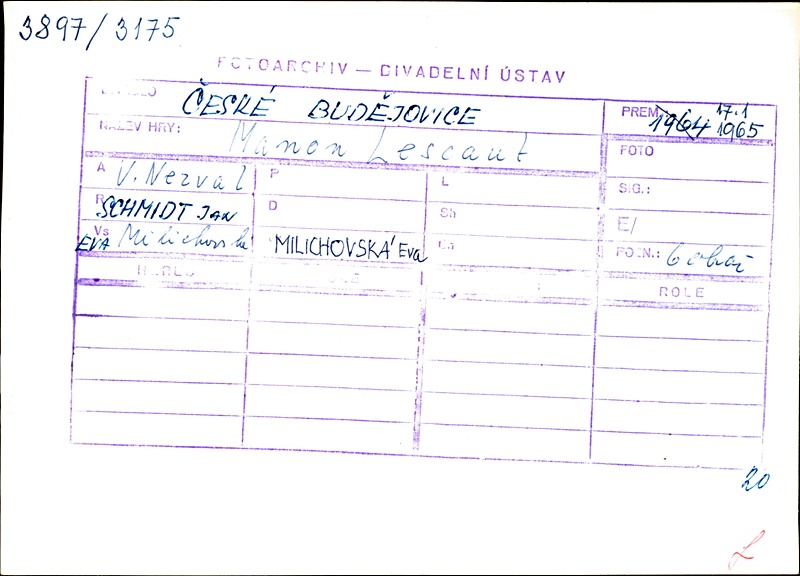 3897/3175
FOTOARCHIV — DIVADELNÍ ÚSTAV
ČESKÉ BUDĚJOVICE
PREM. 1964 17.1 1965
NÁZEV HRY: Manon Lescaut
FOTO
A V. Nezval P L
SIG.:
R SCHMIDT JAN D Sh
E/
Vs EVA Milichovská MILICHOVSKÁ Eva
POZN.: 6 obrai
ROLE
20
L